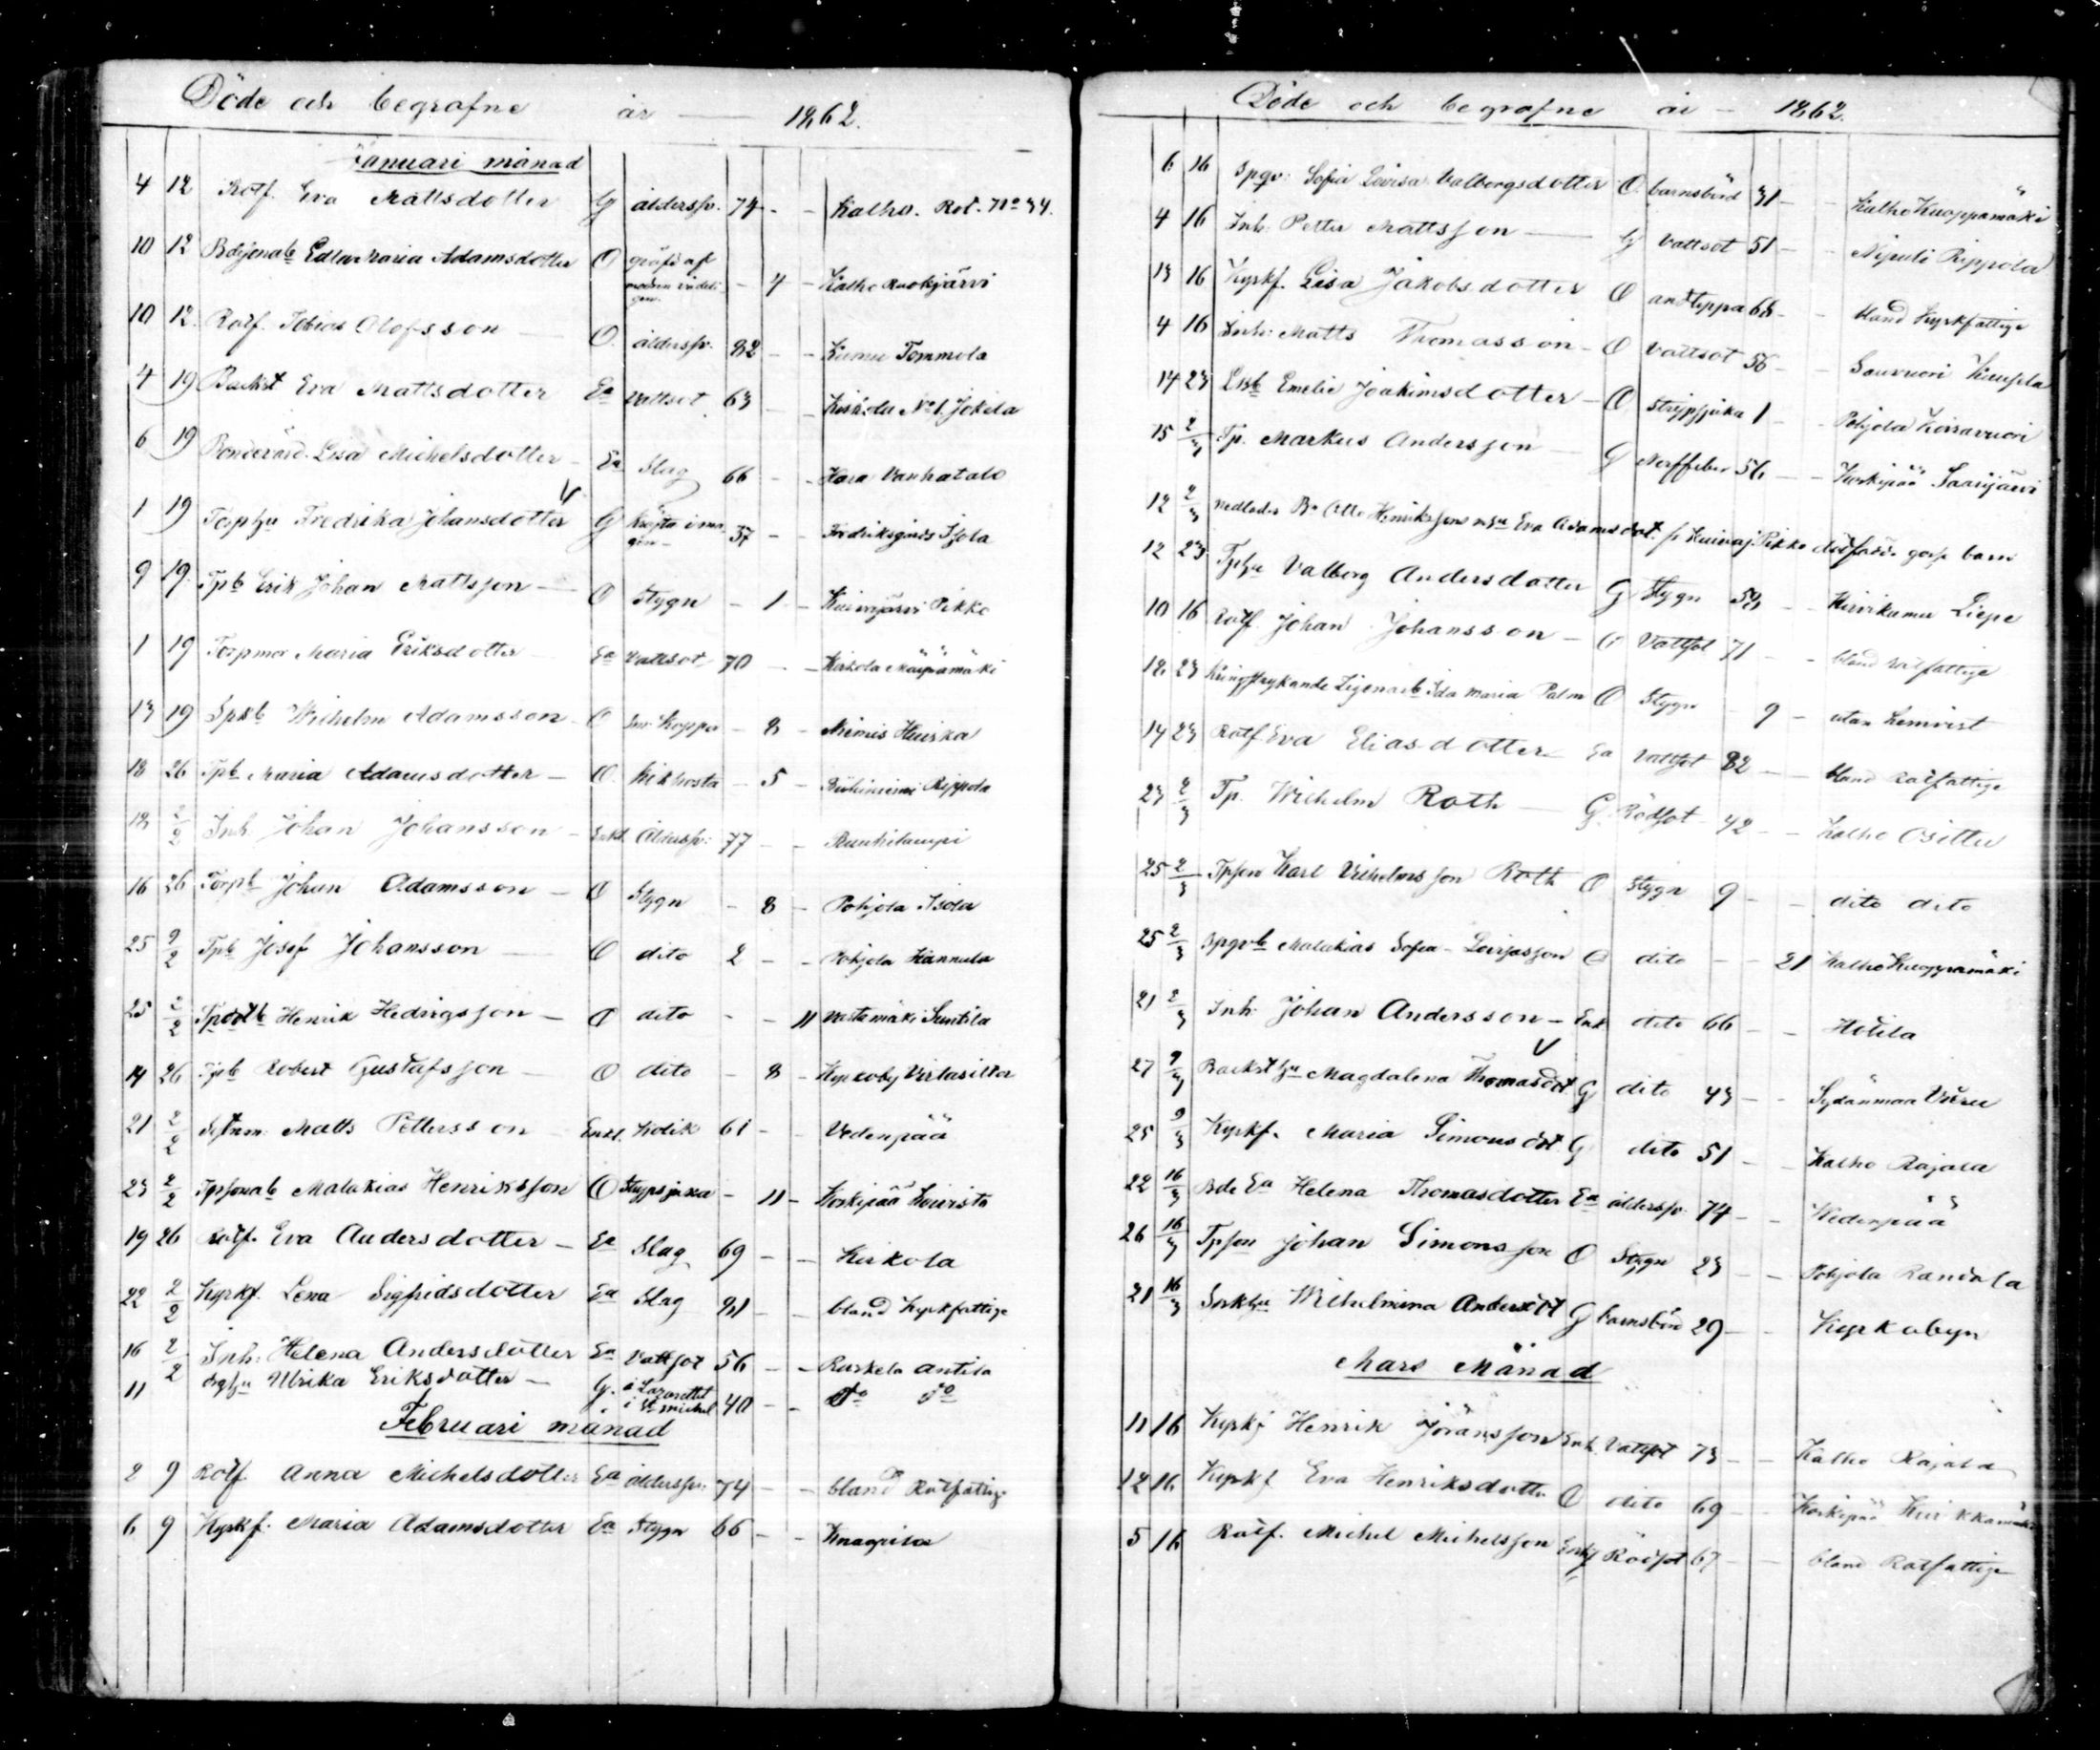 Döde och begrafne år — 1862.
Januari månad
4 12 Rotf. Eva Mattsdotter G ålderssv. 74 - - Kalho. Rot. No 34.
10 12 Bdesonab Edla Maria Adamsdotter O qväfd af modren - 4 - Kalho Ruokjärvi
10 12 Rotf. Tobias Olofsson O. åldersv. 82 - - Tommola
4 19 Backst Eva Mattsdotter Ea Vattsot 63 - - Kirkola No 1. Jokela
6 19 Bondeänk. Lisa Michelsdotter Ea Slag 66 - - Hara Vanhatalo
1 19 Torphu Fredrika Johansdotter G kräfta i magen 37 - - Fredriksgårds Isola
9 19 Tpb Erik Johan Mattsson O Stygn - 1 - Kuivajärvi Pikko
1 19 Torpmor Maria Eriksdotter Ea Vattsot 70 - - Kirkola Mäyrämäki
13 19 Spkb Wilhelm Adamsson O koppor - 8 - Niemis Huiska
18 26 Tpb Maria Adamsdotter O. kikhosta - 5 - Riihiniemi Rippola
18 2/2 Inh Johan Johansson Enkl. Åldersv: 77 - - Ruuhilampi
16 26 Torpb Johan Adamsson O Stygn - 8 - Pohjola Isola
25 2/2 Tpb Josef Johansson O dito 2 - - Pohjola Hannula
25 2/2 Tpdotb Henrik Hedvigsson O dito - - 11 Vestamäki Suntila
14 26 Tpb Robert Gustafsson O dito - 8 - Kyrkoby Virtasilta
21 2/2 Matts Pettersson Enkl. Kolik 61 - - Vedenpää
23 2/2 Tpsonab Malakias Henriksson O Strypsjuka - 11 - Korkipää Kouvista
19 26 Rotf. Eva Andersdotter Ea Slag 69 - - Kirkola
22 2/2 Kyrkf. Lena Sigfridsdotter Ea Slag 81 - - bland kyrkfattige
16 2/2 Inh: Helena Andersdotter Ea Vattsot 56 - - Ruskela Antila
11 Ulrika Eriksdotter G. i Lazarettet i St Michel 40 - - do do
Februari månad
2 9 Rotf. Anna Michelsdotter Ea åldersv: 74 - - bland Rotfattige
6 9 Kyrkf. Maria Adamsdotter Ea Stygn 66 - - Knaapila
Döde och begrafne år — 1862.
6 16 Spqv: Sofia Lovisa Valborgsdotter O. barnsbörd 31 - - Kalho Kuoppamäki
4 16 Inh: Petter Mattsson G Vattsot 51 - - Nipuli Rippola
13 16 Kyrkf. Lisa Jakobsdotter O andtäppa 68 - - bland kyrkfattige
4 16 Inh: Matts Thomasson O Vattsot 56 - - Sauvuori
14 23 Emelie Joakimsdotter O Strypsjuka 1 - - Pohjola
15 2/3 Tp. Markus Andersson G Nerffeber 56 - - Korkipää Saarijärvi
12 2/3 Otto Henriksson Eva Adamsdot. fr. Kuivaj: Pikko dödfödt goss barn
12 23 Tphu Valborg Andersdotter G Stygn 53 - - Hirvikumu Liepe
10 16 Rotf. Johan Johansson G Vattsot 71 - - bland rotfattige
18 23 Kringstrykande Zigenarb Ida Maria Palm O Stygn - 9 - utan hemvist
14 23 Rotf. Eva Eliasdotter Ea Vattsot 82 - - bland rotfattige
23 2/3 Tp. Wilhelm Roth G. Rödsot 42 - - Kalho Osittu
25 2/3 Tpson Karl Vilhelmsson Roth O Stygn 9 - - dito dito
25 2/3 Spqvb Malakias Sofia Lovisasson O dito - - 21 Kalho Kuoppamäki
21 2/3 Inh: Johan Andersson Enk dito 66 - - Hotila
27 9/3 Backsthu Magdalena Thomasdot G dito 43 - - Sydänmaa
25 9/3 Kyrkf. Maria Simonsdot G dito 51 - - Kalho Rajala
22 16/3 Bde Ea Helena Thomasdotter Ea åldersv. 74 - - Wedenpää
26 16/3 Tpson Johan Simonsson O Stygn 23 - - Pohjola
21 16/3 Wilhelmina Andersdot G barnsbörd 29 - - Kyrkobyn
Mars Månad
11 16 Kyrkf Henrik Jöransson Enk. Vattsot 73 - - Kalho Rajala
12 16 Kyrkf Eva Henriksdotter O dito 69 - - Korkipää
5 16 Rotf. Michel Michelsson Enkl Rödsot 67 - - bland Rotfattige